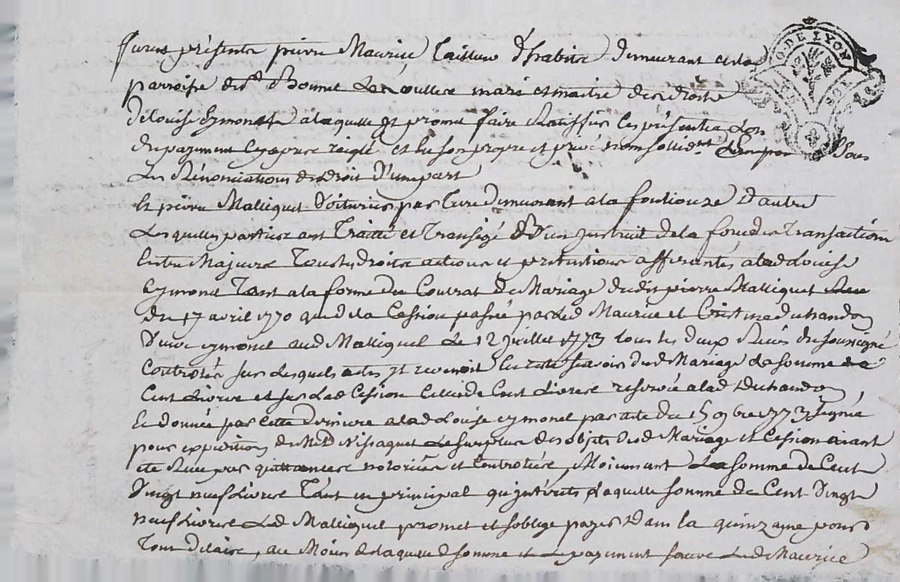 furent présents pierre Maurice Tailleur d'habits demeurant en la
G. DE LYON
paroisse de St Bonnet Les oulles mari et maitre des droits
SOL
De louise eymonet a laquelle il promet faire Ratiffier les présentes
En payement et et son propre et privé nom sollidt
Les Rénonciations de Droit D'une part
Et pierre Malliquet Voiturier par Terre demeurant a la fouliouze D'autre
Lesquelles parties ont Traitté et Transigé de la force des Transactions
Entre Majeurs Tous les droits actions et prétentions afferantes a lad Louise
eymonet Tant a la forme du Contrat De Mariage dudit pierre Malliquet
Du 17 avril 1770 que de la Cession passée par led Maurice et
eymonet aud Malliquet Le 12 juillet 1773 tous les deux Reçus du soussigné
Controlés sur lesquels actes il revenoit savoir dud Mariage la somme de
Cent Livres et sur lad Cession Celle de Cent Livres reservée a lad
Et donnée par cette derniere a lad Louise eymonet par acte du 15 9bre 1773 signé
pour expedition de Me Le surplus des objets dud Mariage et Cession aiant
été par quittances notoriées et Controlées, Moienant La somme de Cent
Vingt neuf Livres Tant en principal qu'intérêts Laquelle somme de Cent Vingt
neuf Livres Led Malliquet promet et s'oblige payer dans la quinzaine pour
Tout Delai, au Moien de laquelle somme et le payement Led Maurice